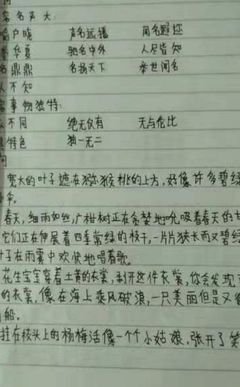 名声大:
户晓 声名远播 闻名遐迩
华夏 驰名中外 人尽皆知
鼎鼎 名扬天下 举世闻名
人不知
事物独特:
不同 绝无仅有 无与伦比
特色 独一无二
宽大的叶子遮在猕猴桃的上方,好像许多碧绿
春天,细雨如丝,广柑树正在贪婪地吮吸着春天的
它们正在伸展着四季常绿的枝子,一片片狭长而又碧绿
叶子在雨雾中欢快地唱着歌。
花生宝宝穿着土黄的衣裳,剥开这件衣裳,你会发现
的衣裳,像在海上乘风破浪,一只美丽但是又
船。
挂在枝头上的杨梅活像一个个小姑娘,张开了笑